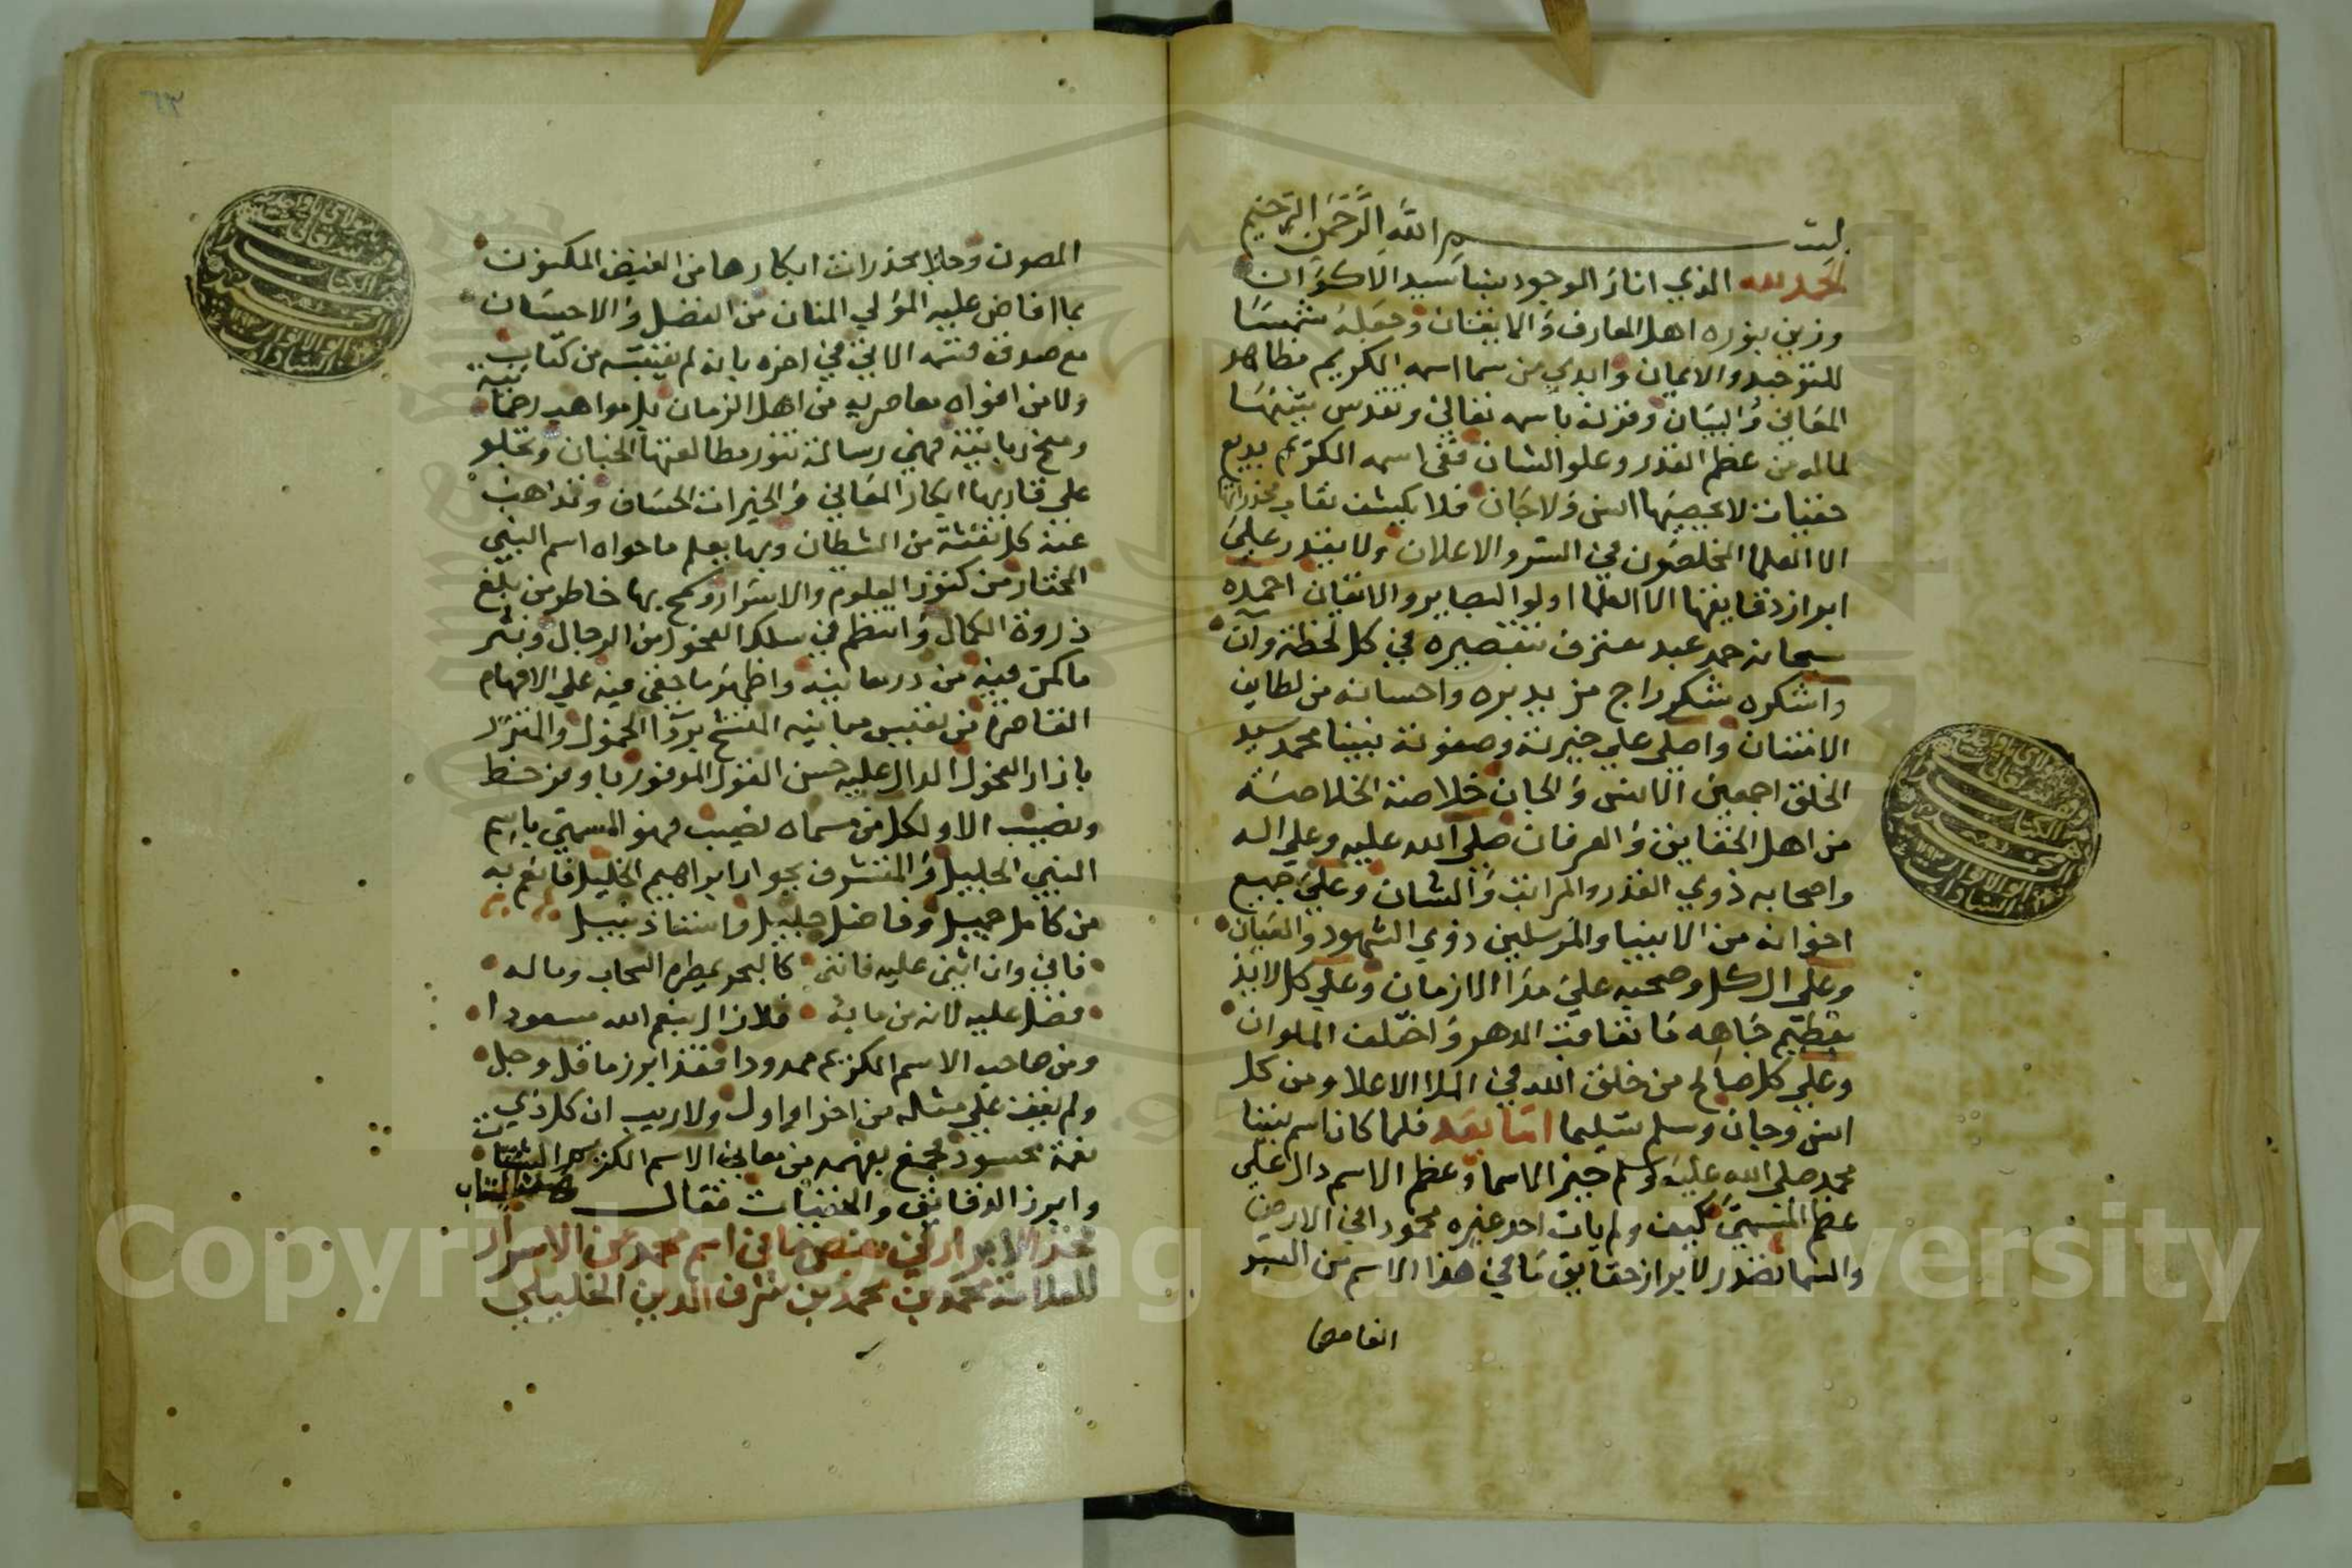 بسم الله الرحمن الرحيم
الحمد لله الذي انار الوجود بنبينا سيد الاكوان
وزين بنوره اهل المعارف والايقان وجعله شمسا
للتوحيد والايمان وابدي من سما اسمه الكريم مظاهر
المعاني والبيان وقرنه باسمه تعالى وتقدس تنبيها
لماله من عظم القدر وعلو الشان ففي اسمه الكريم بديع
خفيات لا يحصيها انس ولا جان فلا يكشف نقاب مخدراتها
الا العلما المخلصون في السر والاعلان ولا يقدر على
ابراز دقايقها الا العلما اولوا البصاير والاتقان احمده
سبحانه حمد عبد معترف بتقصيره في كل لحظة وآن
واشكره شكر راج مزيد بره واحسانه من لطايف
الامتنان واصلي علي خيرته وصفوته نبينا محمد سيد
الخلق اجمعين الانس والجان خلاصة الخلاصة
من اهل الحقايق والعرفان صلى الله عليه وعلي اله
واصحابه ذوي القدر والمراتب والشان وعلي جميع
اخوانه من الانبيا والمرسلين ذوي الشهود والعيان
وعلي ال كل وصحبه علي مدا الازمان وعلي كل لايذ
بعظيم جاهه ما تعاقب الدهر واختلف الملوان
وعلي كل صالح من خلق الله في الملا الاعلا ومن كل
انس وجان وسلم تسليما اما بعد فلما كان اسم نبينا
محمد صلى الله عليه وسلم خير الاسما وعظم الاسم دال علي
عظم المسمي كيف ولم يات احد غيره محمودا في الارض
والسما تصدر لابراز حقايق ما في هذا الاسم من السر
المصون وجلا مخدرات ابكارها من الغيض المكنون
بما افاض عليه المولي المنان من الفضل والاحسان
مع صدق قسمه الاتي في اخره بانه لم يقتبسه من كتاب
ولا من افواه معاصريه من اهل الزمان بل مواهب رحمانية
ومنح ربانية فهي رسالة تنور مطالعتها الجنان وتجلو
علي قاريها ابكار المعاني والخيرات الحسان وتذاهب
عنه كل نفثة من الشطان وبها يعلم ما حواه اسم النبي
المختار من كنوز العلوم والاسرار وكم بها خاطر من بلغ
ذروة الكمال وانتظم في سلك الفحول من الرجال ونشر
ما كمن فيه من در معانيه واظهر ما خفي فيه علي الافهام
القاصرة من نفيس مبانيه المتشح بردا الخمول والمتزر
بازار الفحول الدال عليه حسن القول الموفور باوفر حظ
ونصيب الا ولكل من مسماه نصيب فهو المسمي باسم
النبي الجليل والمتشرف بجوار ابراهيم الخليل فانعم به
من كامل جميل وفاضل جليل واستاذ نبيل
فاني وان اثني عليه فانني كالبحر يمطره السحاب وماله
فضل عليه لانه من مايه فلا زال بنعم الله مسعودا
ومن صاحب الاسم الكريم ممدودا فقد ابرز ما قل وجل
ولم يقف علي مثله من اخر او اول ولا ريب ان كل ذي
نعمة محسود فجمع بفهمه من معاني الاسم الكريم الشتات
وابرز الدقايق والخفيات فقال
مخدر الابرار في بعض ما في اسم محمد من الاسرار
للعلامة محمد بن محمد بن شرف الدين الخليلي
الغامض
٦٣
Copyright © King Saud University